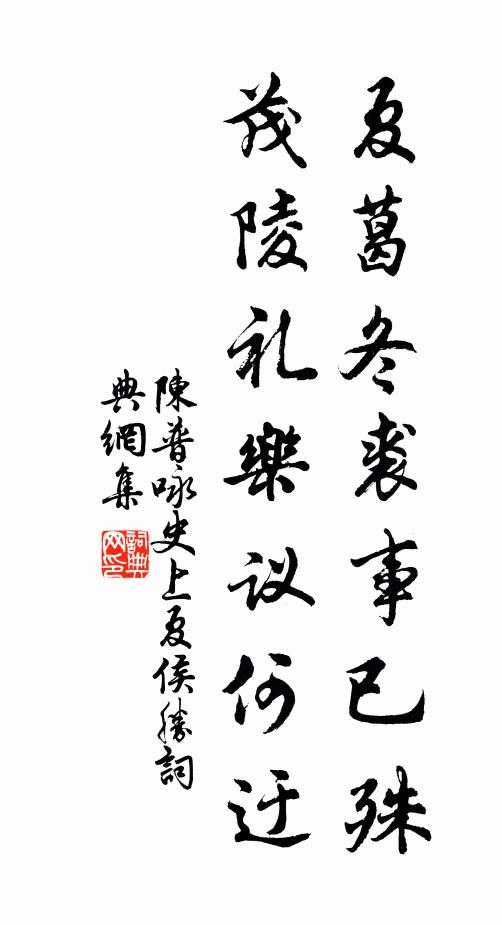 夏葛冬裘事已殊
茂陵礼樂议何迂
陳普咏史上夏侯勝詞
典網集
詞典
网印